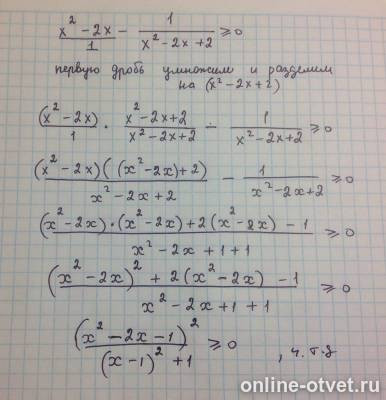 (x² - 2x)/1 - 1/(x² - 2x + 2) ≥ 0
первую дробь умножим и разделим
на (x² - 2x + 2)
(x² - 2x)/1 · (x² - 2x + 2)/(x² - 2x + 2) - 1/(x² - 2x + 2) ≥ 0
(x² - 2x)((x² - 2x) + 2)/(x² - 2x + 2) - 1/(x² - 2x + 2) ≥ 0
((x² - 2x)·(x² - 2x) + 2(x² - 2x) - 1)/(x² - 2x + 1 + 1) ≥ 0
((x² - 2x)² + 2(x² - 2x) - 1)/(x² - 2x + 1 + 1) ≥ 0
(x² - 2x - 1)²/((x - 1)² + 1) ≥ 0 , ч.т.д
online-otvet.ru